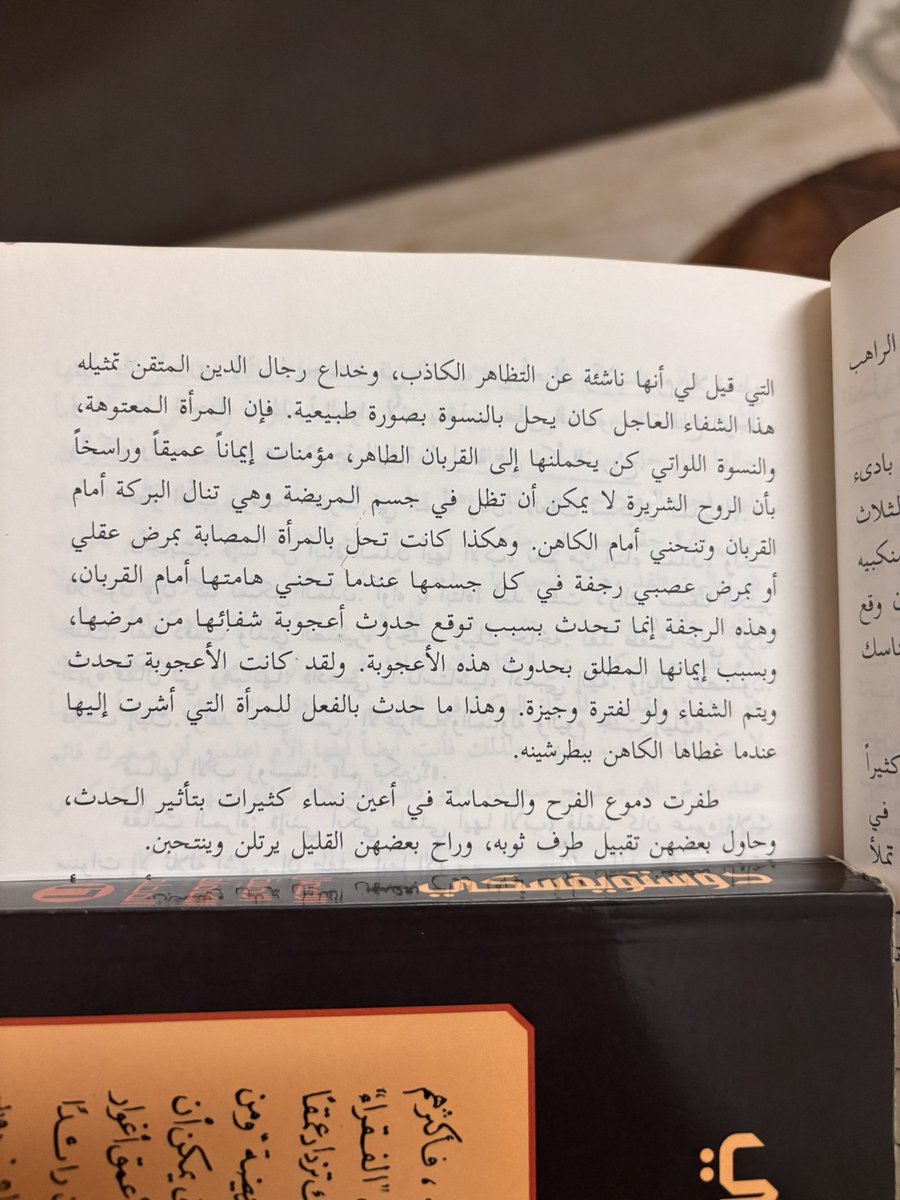 التي قيل لي أنها ناشئة عن التظاهر الكاذب، وخداع رجال الدين المتقن تمثيله
هذا الشفاء العاجل كان يحل بالنسوة بصورة طبيعية. فإن المرأة المعتوهة،
والنسوة اللواتي كن يحملنها إلى القربان الطاهر، مؤمنات إيماناً عميقاً وراسخاً
بأن الروح الشريرة لا يمكن أن تظل في جسم المريضة وهي تنال البركة أمام
القربان وتنحني أمام الكاهن. وهكذا كانت تحل بالمرأة المصابة بمرض عقلي
أو بمرض عصبي رجفة في كل جسمها عندما تحني هامتها أمام القربان،
وهذه الرجفة إنما تحدث بسبب توقع حدوث أعجوبة شفائها من مرضها،
وبسبب إيمانها المطلق بحدوث هذه الأعجوبة. ولقد كانت الأعجوبة تحدث
ويتم الشفاء ولو لفترة وجيزة. وهذا ما حدث بالفعل للمرأة التي أشرت إليها
عندما غطاها الكاهن ببطرشينه.
طفرت دموع الفرح والحماسة في أعين نساء كثيرات بتأثير الحدث،
وحاول بعضهن تقبيل طرف ثوبه، وراح بعضهن القليل يرتلن وينتحبن.
الراهب
بادىء
الثلاث
منكبيه
وقع
كثيراً
في
تملأ
دوستويفسكي
، فأكثرهم
"الفقراء"
تزداد عمقًا
ومن
يمكن أن
عمق أغوار